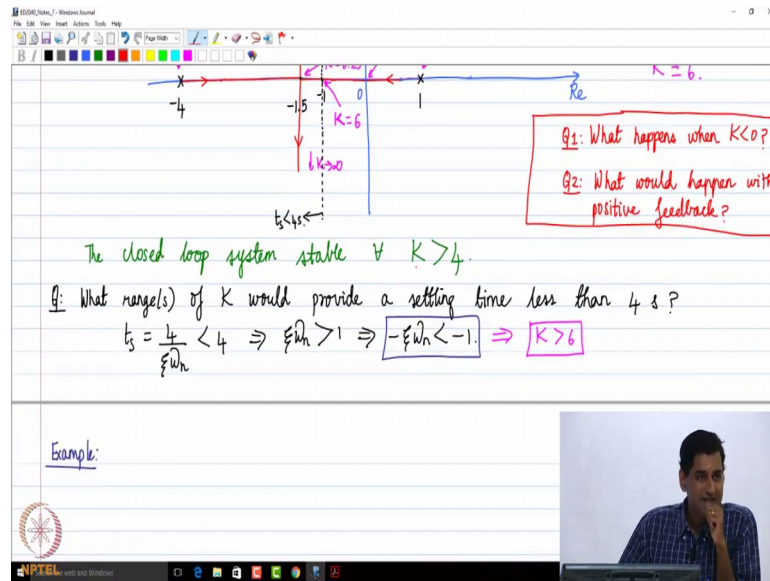 ED2040_Notes_7 - Windows Journal
File Edit View Insert Actions Tools Help
Page Width
B I
K = 6.
-4
-1.5
-1
0
1
Re
K=6
K→∞
ts<4s.
Q1: What happens when K<0?
Q2: What would happen with
positive feedback?
The closed loop system stable ∀ K>4.
Q: What range(s) of K would provide a settling time less than 4 s?
ts = 4/ξωn < 4 ⇒ ξωn > 1 ⇒ -ξωn < -1. ⇒ K>6
Example:
NPTEL
the web and Windows